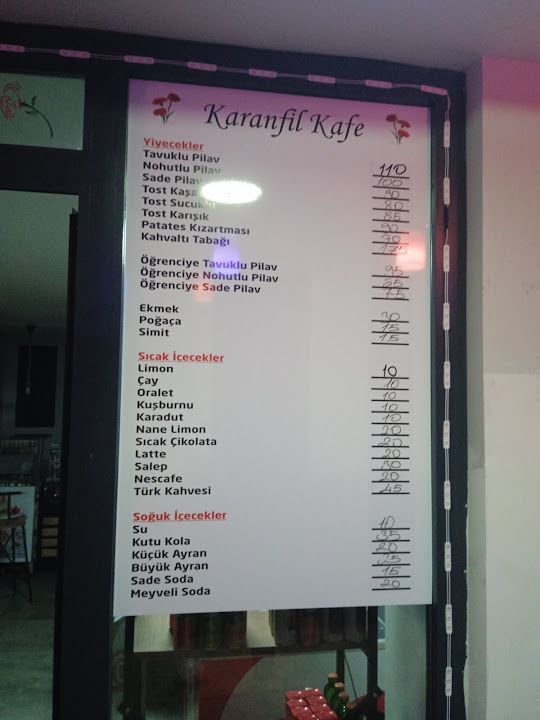 Karanfil Kafe
Yiyecekler
Tavuklu Pilav 110
Nohutlu Pilav 100
Sade Pilav 90
Tost 80
Tost Sucuklu 85
Tost Karışık 90
Patates Kızartması 70
Kahvaltı Tabağı
Öğrenciye Tavuklu Pilav 95
Öğrenciye Nohutlu Pilav 85
Öğrenciye Sade Pilav 75
Ekmek 30
Poğaça 15
Simit 15
Sıcak İçecekler
Limon 10
Çay 10
Oralet 10
Kuşburnu 10
Karadut 10
Nane Limon 20
Sıcak Çikolata 20
Latte 20
Salep 30
Nescafe 20
Türk Kahvesi 45
Soğuk İçecekler
Su 10
Kutu Kola 35
Küçük Ayran 20
Büyük Ayran 25
Sade Soda 15
Meyveli Soda 20